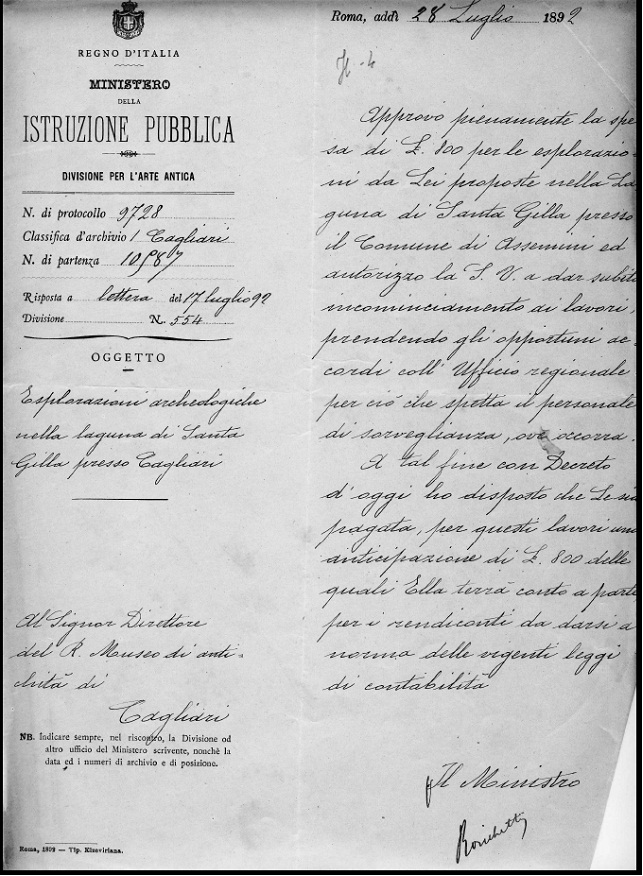 REGNO D'ITALIA
MINISTERO
DELLA
ISTRUZIONE PUBBLICA
DIVISIONE PER L'ARTE ANTICA
N. di protocollo 9728
Classifica d'archivio 1 Cagliari
N. di partenza 10987
Risposta a lettera del 17 luglio 92
Divisione N. 554
OGGETTO
Esplorazioni archeologiche
nella laguna di Santa
Gilla presso Cagliari
Al Signor Direttore
del R. Museo di anti-
chità di
Cagliari
NB. Indicare sempre, nel riscontro, la Divisione od
altro ufficio del Ministero scrivente, nonchè la
data ed i numeri di archivio e di posizione.
Roma, 1892 — Tip. Elzeviriana.
Roma, addì 28 Luglio 1892
Approvo pienamente la spe
sa di £. 800 per le esplorazio
ni da Lei proposte nella La
guna di Santa Gilla presso
il Comune di Assemini ed
autorizzo la S. V. a dar subito
incominciamento ai lavori,
prendendo gli opportuni ac
cordi coll' Ufficio regionale
per ciò che spetta il personale
di sorveglianza, ove occorra.
A tal fine con Decreto
d'oggi ho disposto che Le sia
pagata, per questi lavori una
anticipazione di £. 800 delle
quali Ella terrà conto a parte
per i rendiconti da darsi a
norma delle vigenti leggi
di contabilità
Il Ministro